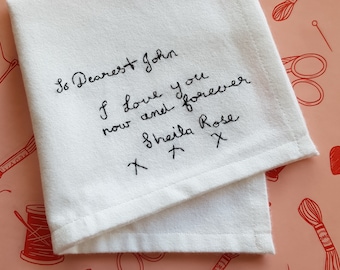 To Dearest John
I Love you
now and forever
Sheila Rose
x x x